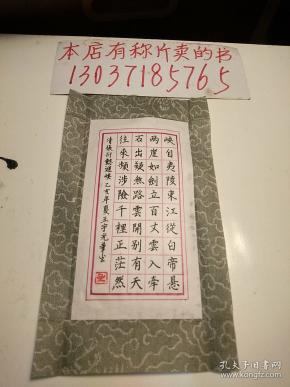 本店有称斤卖的书
13037185765
峡自夷陵東江從白帝懸
兩崖如劍立百丈雲入牽
石出疑無路雲開别有天
往來頻涉險千裡正茫然
清張衍懿瞿峽 乙亥年夏王宇光華
孔夫子旧书网